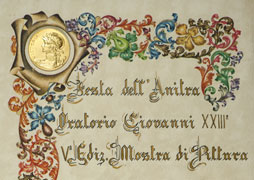 Festa dell'Anitra
Oratorio Giovanni XXIII°
V° Ediz. Mostra di Pittura